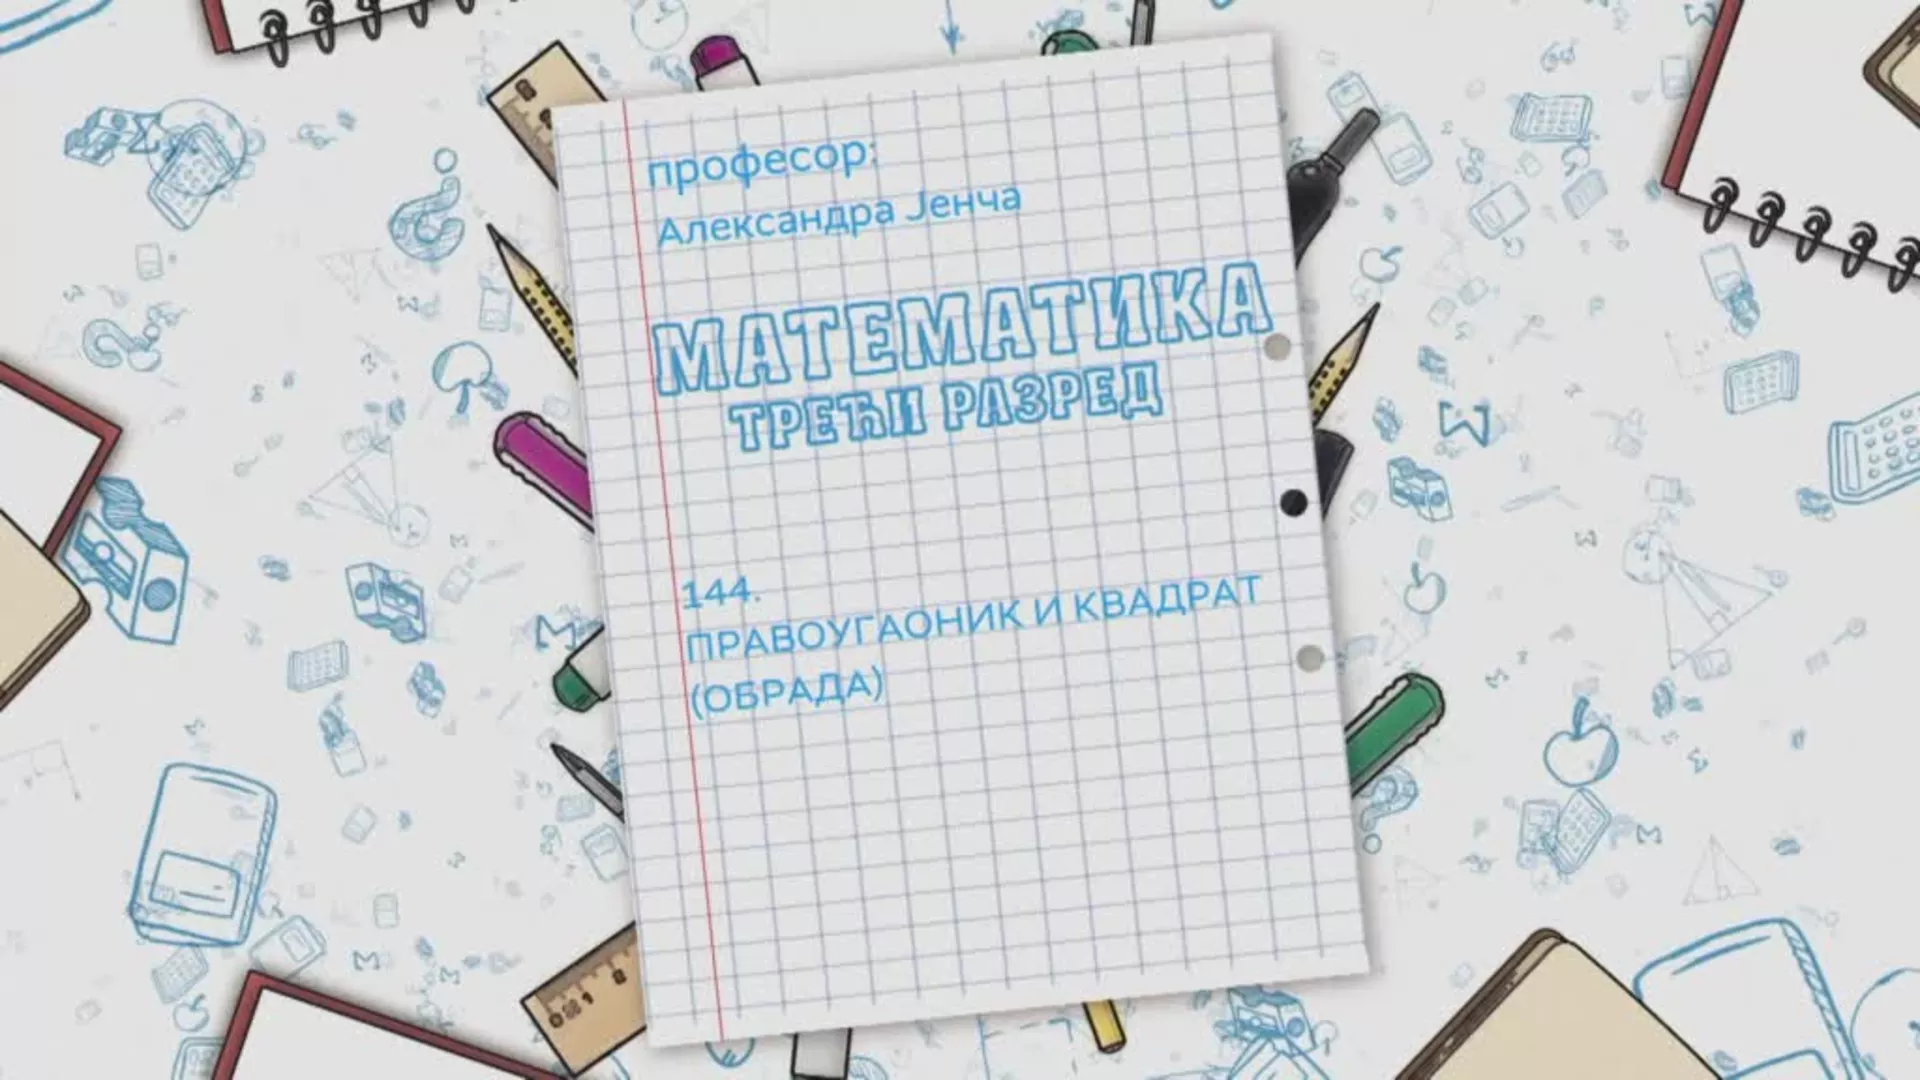 професор:
Александра Јенча
МАТЕМАТИКА
ТРЕЋИ РАЗРЕД
144.
ПРАВОУГАОНИК И КВАДРАТ
(ОБРАДА)